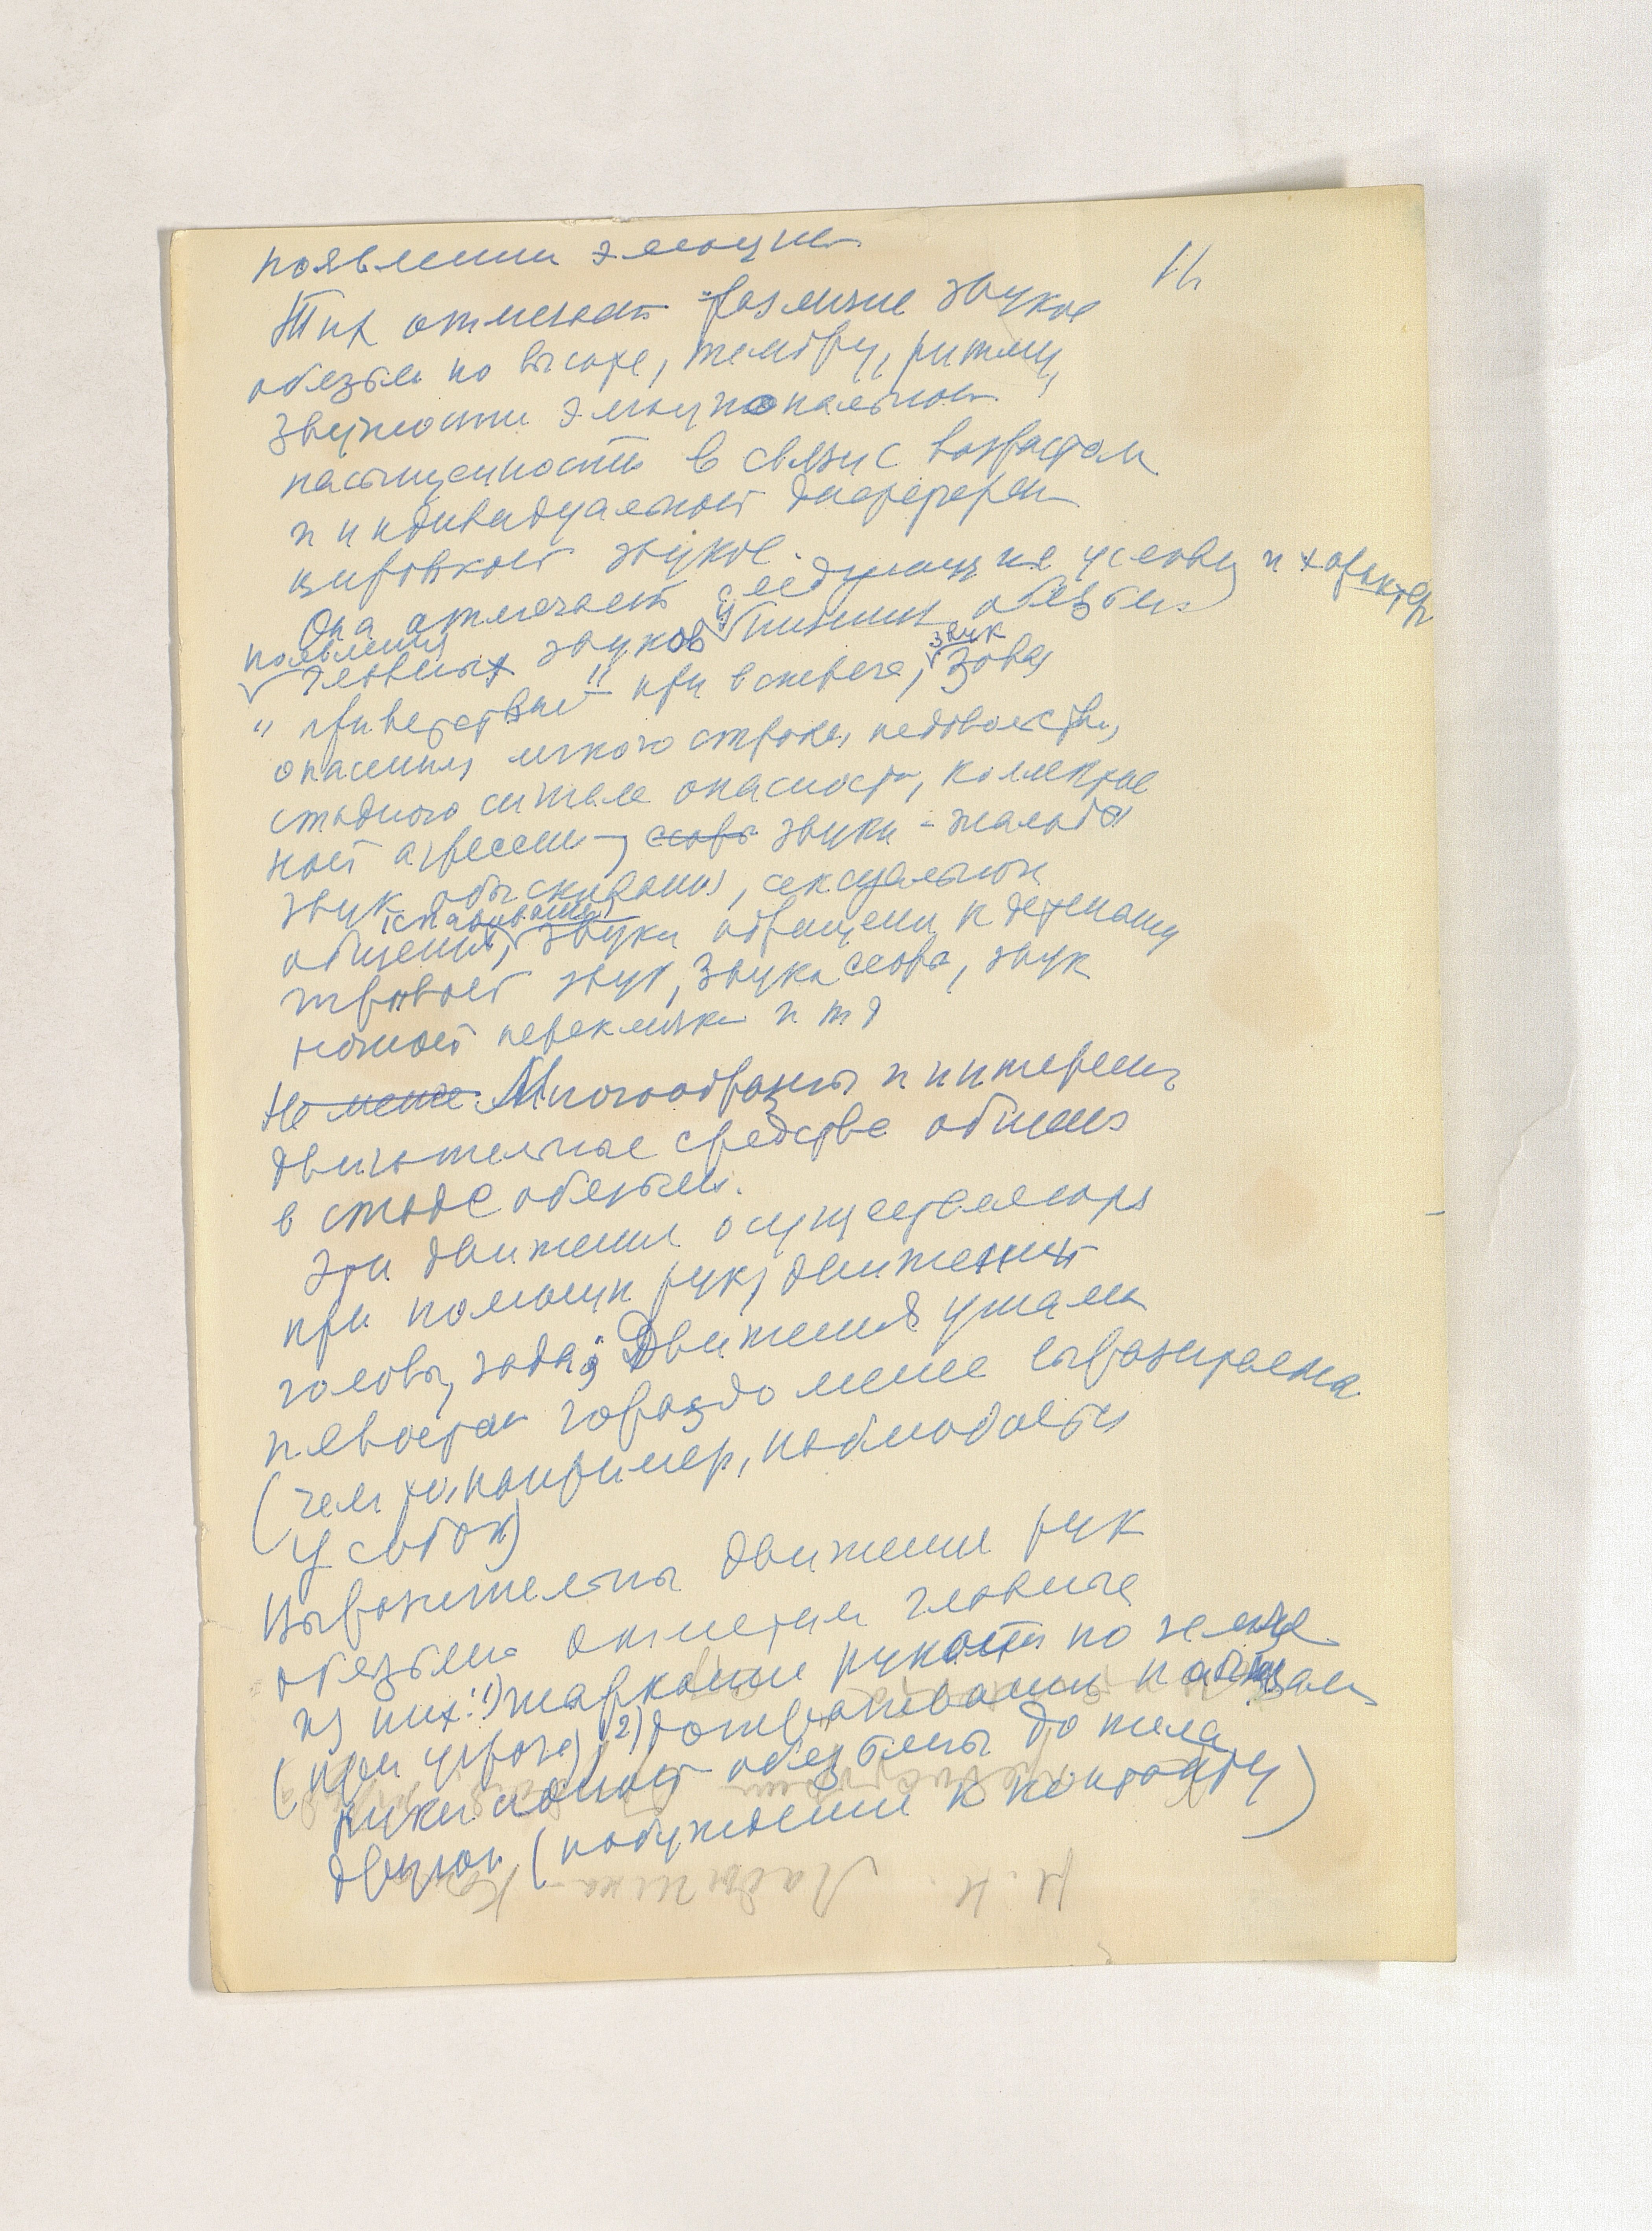 появлении эмоции
11
Тих отмечает различие звуков
обезьян по высоте, тембру, ритму,
звучности эмоциональной
насыщенности в связи с возрастом
и индивидуальной дифферен
цировкой звуков.
Она отмечает следующия условия и характер
появления
главных звуков у низших обезьян
"приветствия" при встрече, звук зова,
опасения легкого страха, недовольства,
стадного сигнала опасности, коллектив
ной агрессии, звуки - жалобы
звук обыскивания, сексуальной
(спаривания)
общения, звуки обращения к детенышу
звук, звуки ссоры, звук
ночной переклички и т д
Не менее Многообразны и интересны
двигательные средства общения
в стаде обезьян.
Эти движения осуществляются
при помощи рук, движений
головы, зада; Движения ушами
и хвостом гораздо менее выразительны
(чем то, например, наблюдается
у собак)
Выразительны движения рук
обезьян отметим главные
из них: 1) шаркание рукой по земле
(при угрозе) 2) дотрагивание пальцами
руки одной обезьяны до тела
другой (побуждение к контакту)
Н. Н. Ладыгина-К